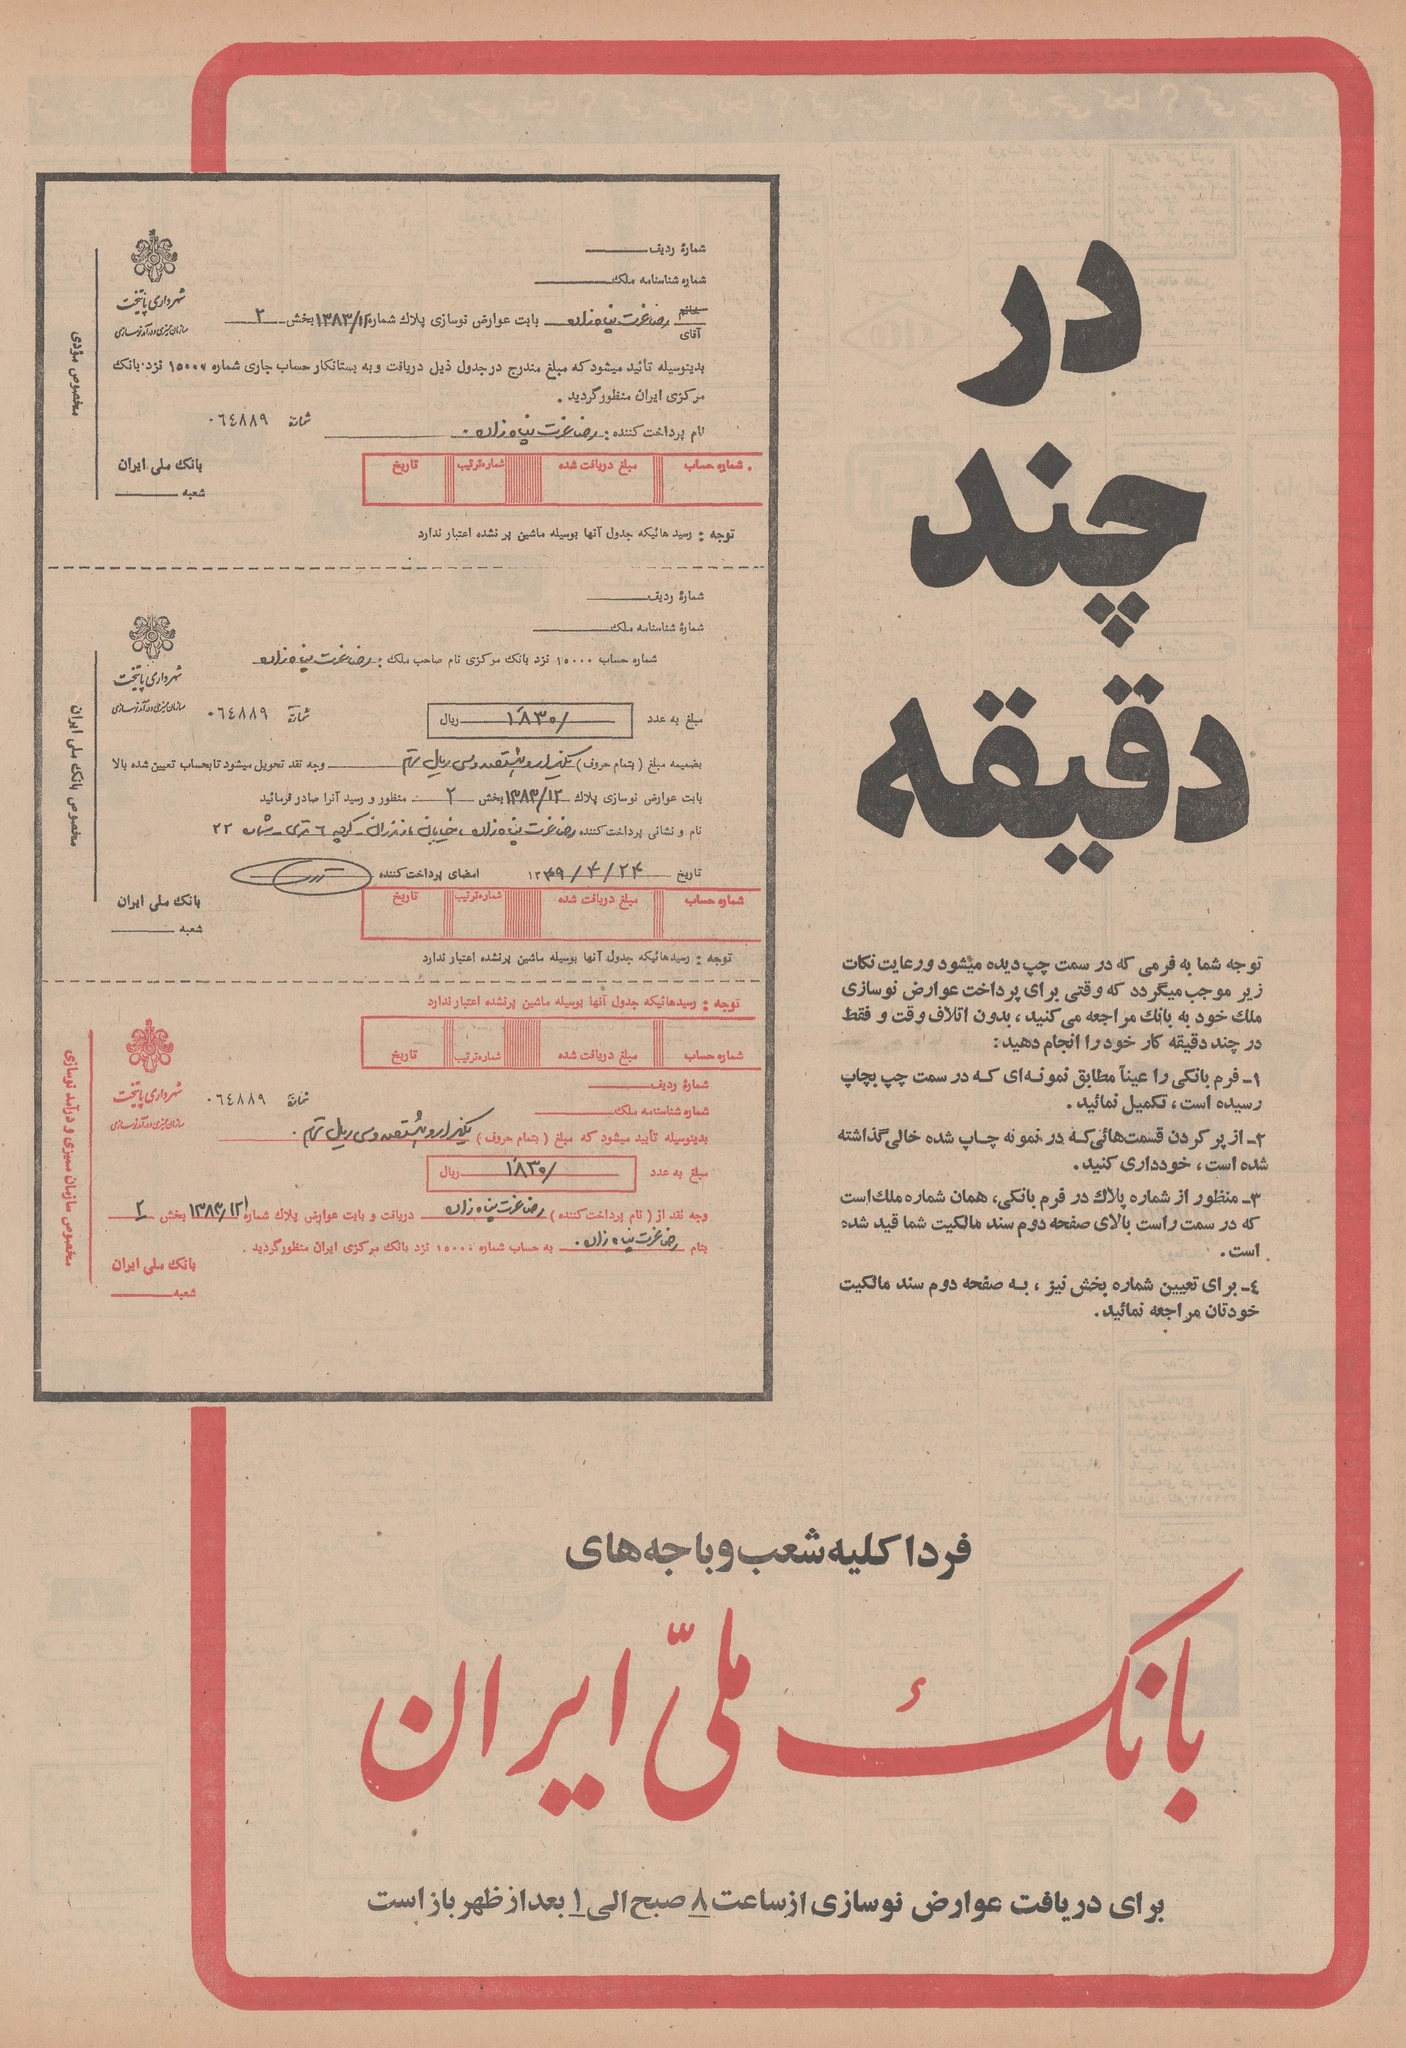 در
چند
دقیقه
توجه شما به فرمی که در سمت چپ دیده میشود ورعایت نکات
زیر موجب میگردد که وقتی برای پرداخت عوارض نوسازی
ملك خود به بانك مراجعه می‌کنید، بدون اتلاف وقت و فقط
در چند دقیقه کار خود را انجام دهید:
۱- فرم بانکی را عیناً مطابق نمونه‌ای که در سمت چپ بچاپ
رسیده است، تکمیل نمائید.
۲- از پر کردن قسمت‌هائی‌که در نمونه چاپ شده خالی‌گذاشته
شده است، خودداری کنید.
۳- منظور از شماره پلاك در فرم بانکی، همان شماره ملك است
که در سمت راست بالای صفحه دوم سند مالکیت شما قید شده
است.
٤- برای تعیین شماره بخش نیز، به صفحه دوم سند مالکیت
خودتان مراجعه نمائید.
شمارهٔ ردیف
شمارهٔ شناسنامه ملك
خانم
آقای
رضا عزت پناه زاده بابت عوارض نوسازی پلاك شماره ۱۳۸۳/۱۲ بخش ۲
بدینوسیله تأئید میشود که مبلغ مندرج درجدول ذیل دریافت وبه بستانکار حساب جاری شماره ۱۵۰۰۰ نزد بانك
مرکزی ایران منظورگردید.
نام پرداخت کننده: رضا عزت پناه زاده.
شمارهٔ ۰۶٤۸۸۹
شهرداری پایتخت
سازمان ممیزی و درآمد نوسازی
مخصوص مؤدی
بانك ملی ایران
شعبه
شماره حساب مبلغ دریافت شده شماره ترتیب تاریخ
توجه: رسید هائیکه جدول آنها بوسیله ماشین پر نشده اعتبار ندارد
شمارهٔ ردیف
شمارهٔ شناسنامه ملك
شماره حساب ۱۵۰۰۰ نزد بانك مرکزی نام صاحب ملك: رضا عزت پناه زاده
شهرداری پایتخت
سازمان ممیزی و درآمد نوسازی
شمارهٔ ۰۶٤۸۸۹
مبلغ به عدد ۱۸۳۰/ ریال
بضمیمه مبلغ (بتمام حروف) یکهزار و هشتصد و سی ریال تمام وجه نقد تحویل میشود تابحساب تعیین شده بالا
بابت عوارض نوسازی پلاك ۱۳۸۳/۱۲ بخش ۲ منظور و رسید آنرا صادر فرمائید
نام و نشانی پرداخت‌کننده رضا عزت پناه زاده، خیابان مازندران - کوچه ٦ متری - شماره ۲۲
تاریخ ۱۳۴۹/۴/۲۴ امضای پرداخت کننده
مخصوص بانك ملی ایران
بانك ملی ایران
شعبه
شماره حساب مبلغ دریافت شده شماره ترتیب تاریخ
توجه: رسیدهائیکه جدول آنها بوسیله ماشین پرنشده اعتبار ندارد
توجه: رسیدهائیکه جدول آنها بوسیله ماشین پرنشده اعتبار ندارد
شماره حساب مبلغ دریافت شده شماره ترتیب تاریخ
شمارهٔ ردیف
شمارهٔ شناسنامه ملك
شهرداری پایتخت
سازمان ممیزی و درآمد نوسازی
شمارهٔ ۰۶٤۸۸۹
بدینوسیله تأئید میشود که مبلغ (بتمام حروف) یکهزار و هشتصد و سی ریال تمام.
مبلغ به عدد ۱۸۳۰/ ریال
وجه نقد از (نام پرداخت‌کننده) رضا عزت پناه زاده دریافت و بابت عوارض پلاك شماره ۱۳۸۳/۱۲ بخش ۲
بنام رضا عزت پناه زاده. به حساب شماره ۱۵۰۰۰ نزد بانك مرکزی ایران منظورگردید.
مخصوص سازمان ممیزی و درآمد نوسازی
بانك ملی ایران
شعبه
فردا کلیه شعب و باجه های
بانك ملّی ایران
برای دریافت عوارض نوسازی از ساعت ۸ صبح الی ۱ بعد از ظهر باز است